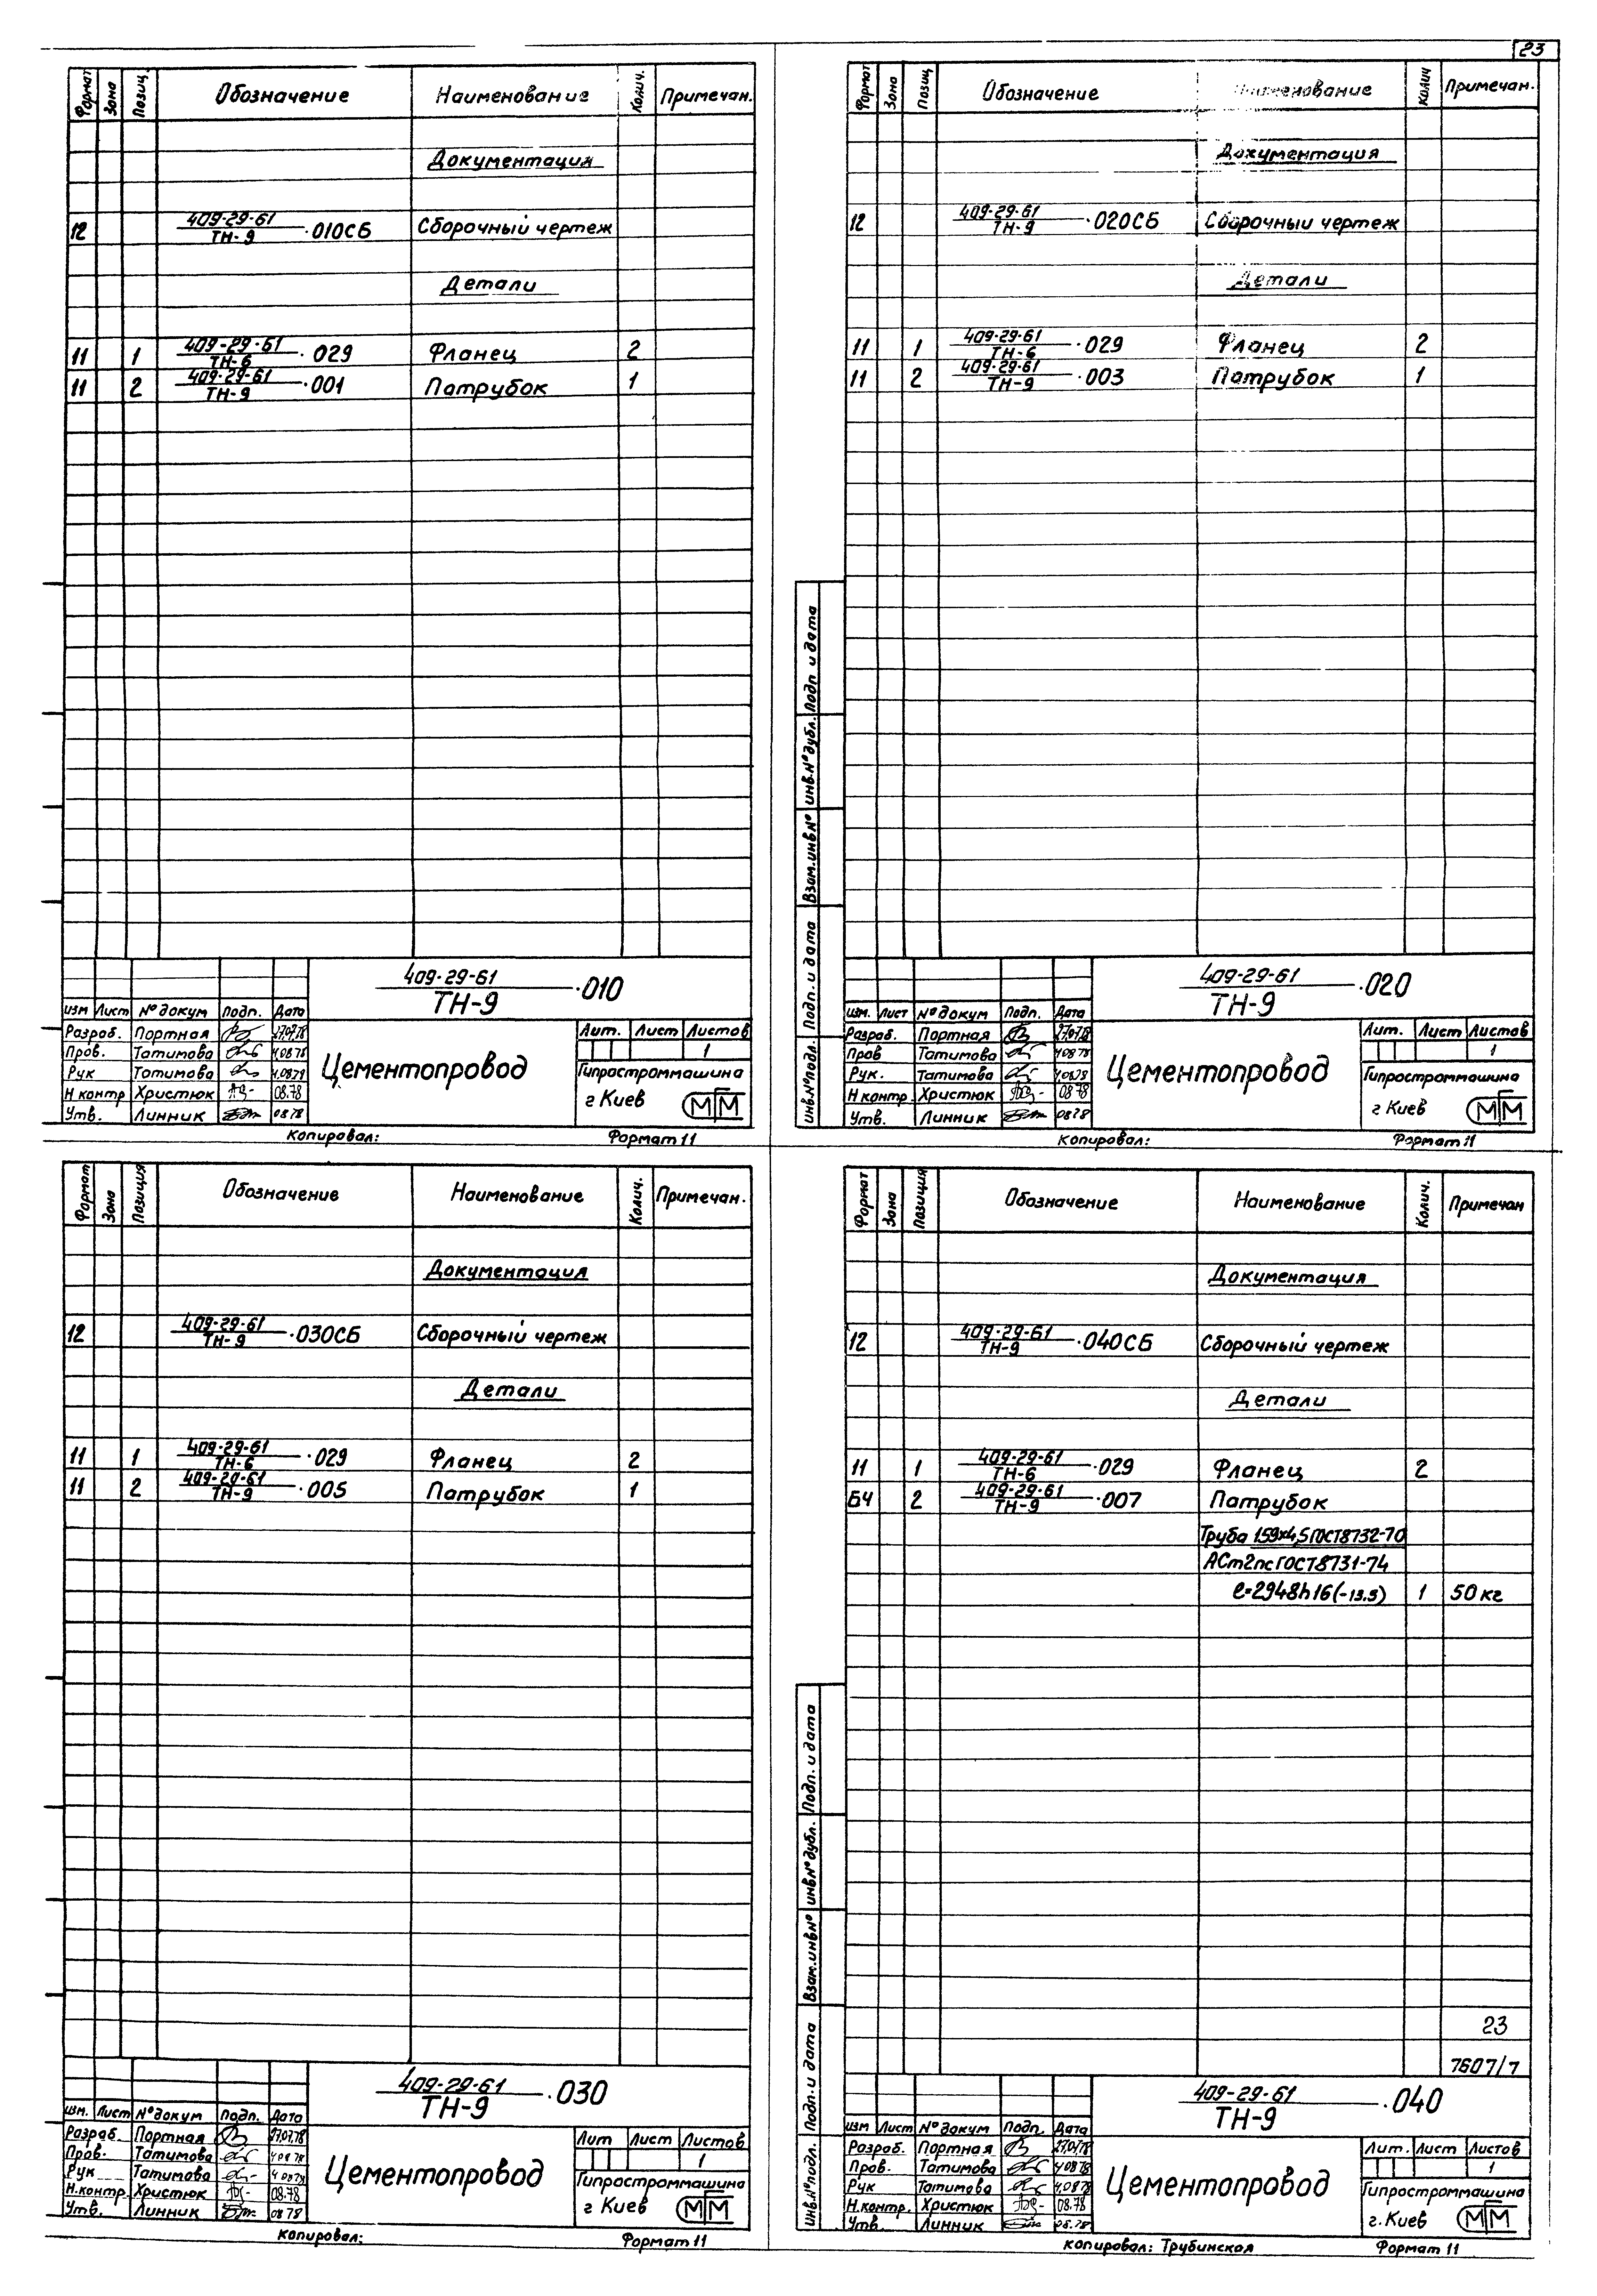 23
Формат Зона Позиц. Обозначение Наименование Колич. Примечан.
Документация
12 409-29-61/ТН-9 ·010СБ Сборочный чертеж
Детали
11 1 409-29-61/ТН-6 ·029 Фланец 2
11 2 409-29-61/ТН-9 ·001 Патрубок 1
409-29-61/ТН-9 ·010
изм Лист № докум Подп. Дата
Разраб. Портная 27.07.78
Пров. Татимова 4.08.78
Рук Татимова 4.08.78
Н контр Христюк 08.78
Утв. Линник 08 78
Цементопровод
Лит. Лист Листов
1
Гипростроммашина
г Киев
МГМ
Копировал: Формат 11
Формат Зона Позиц Обозначение Наименование Колич Примечан.
Документация
12 409-29-61/ТН-9 ·020СБ Сборочный чертеж
Детали
11 1 409-29-61/ТН-6 ·029 Фланец 2
11 2 409-29-61/ТН-9 ·003 Патрубок 1
Подп и дата
инв.№ дубл.
Взам.инв№
Подп. и дата
инв.№подл.
409-29-61/ТН-9 ·020
изм. Лист № докум Подп. Дата
Разраб. Портная 27.07.78
Пров Татимова 4.08 78
Рук. Татимова 4.08.78
Н контр. Христюк 08.78
Утв. Линник 08 78
Цементопровод
Лит. Лист Листов
1
Гипростроммашина
г Киев
МГМ
Копировал: Формат 11
Формат Зона Позиция Обозначение Наименование Колич. Примечан.
Документация
12 409-29-61/ТН-9 ·030СБ Сборочный чертеж
Детали
11 1 409-29-61/ТН-6 ·029 Фланец 2
11 2 409-29-61/ТН-9 ·005 Патрубок 1
409-29-61/ТН-9 ·030
изм. Лист № докум Подп. Дата
Разраб. Портная 27.07.78
Пров. Татимова 4 08 78
Рук Татимова 4 08 78
Н.контр. Христюк 08.78
Утв. Линник 08 78
Цементопровод
Лит Лист Листов
1
Гипростроммашина
г Киев
МГМ
Копировал: Формат 11
Формат Зона Позиция Обозначение Наименование Колич. Примечан
Документация
12 409-29-61/ТН-9 ·040СБ Сборочный чертеж
Детали
11 1 409-29-61/ТН-6 ·029 Фланец 2
БЧ 2 409-29-61/ТН-9 ·007 Патрубок
Труба 159х4,5 ГОСТ8732-70
АСт2пс ГОСТ8731-74
ℓ=2948h16(-13.5) 1 50 кг
Подп. и дата
инв№ дубл.
Взам.инв№
Подп. и дата
инв.№подл.
23
7607/7
409-29-61/ТН-9 ·040
изм Лист № докум Подп. Дата
Разраб. Портная 27.07.78
Пров. Татимова 4.08 78
Рук Татимова 4.08 78
Н.контр. Христюк 08.78
Утв. Линник 08.78
Цементопровод
Лит. Лист Листов
1
Гипростроммашина
г. Киев
МГМ
Копировал: Трубинская Формат 11